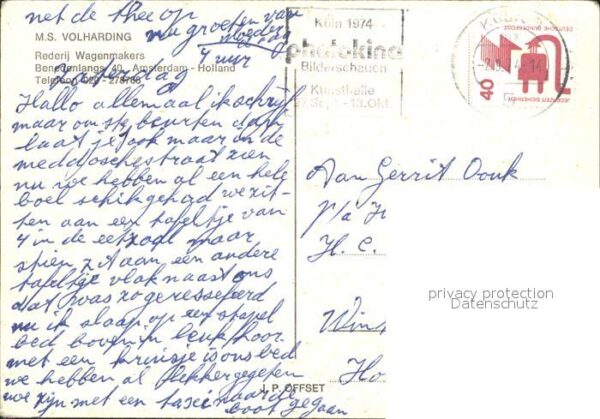 net de thee op
nu groeten van
moeder
dag
M.S. VOLHARDING
4 uur
Rederij Wagenmakers
Benedenlangs 40, Amsterdam - Holland
Telefoon 020 - 278788
zaterdag
Hallo allemaal ik schrijf
maar om ste beurten dan
laat je 't ook maar in de
straat zien
nu we hebben al een hele
boel schik gehad we zit-
ten aan een tafeltje van
4 in de eetzaal maar
stien zit aan een andere
tafeltje vlak naast ons
dat was zo geresseferd
nu ik slaap op een stapel
bed boven in leuk hoor
met een kruisje is ons bed
we hebben al lekker gegeten
we zijn met een taxi naar de
boot gegaan
Köln 1974
photokina
Bilderschauen
Kunsthalle
27. Sept. - 13. Okt.
KÖLN
DEUTSCHE BUNDESPOST
40
JEDERZEIT SICHERHEIT
Aan Gerrit Oonk
p/a H
H. C.
Win
Ho
privacy protection
Datenschutz
J. P. OFFSET